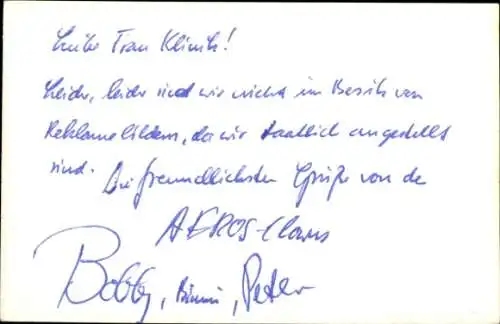 Liebe Frau Klink!
Leider, leider sind wir nicht im Besitz von
Reklamebildern, da wir staatlich angestellt
sind. Die freundlichsten Grüße von de
AEROS-Clowns
Bobby, Peter